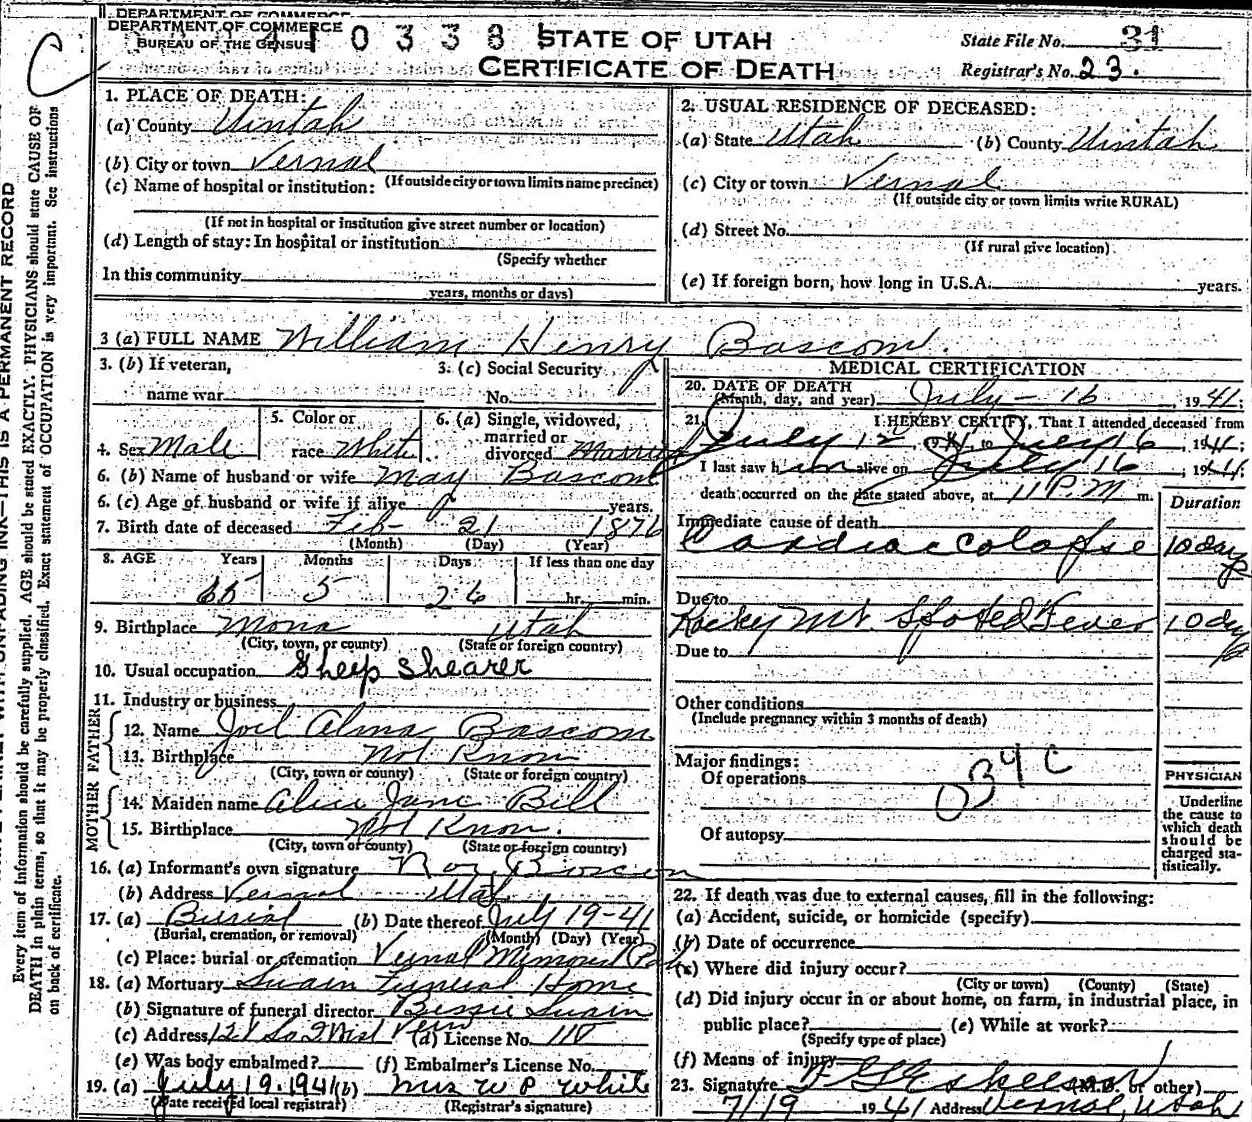 DEPARTMENT OF COMMERCE
DEPARTMENT OF COMMERCE
BUREAU OF THE CENSUS
0 3 3 8
STATE OF UTAH
CERTIFICATE OF DEATH
State File No. 31
Registrar's No. 23.
C
1. PLACE OF DEATH:
(a) County Uintah
(b) City or town Vernal
(If outside city or town limits name precinct)
(c) Name of hospital or institution:
(If not in hospital or institution give street number or location)
(d) Length of stay: In hospital or institution
(Specify whether
In this community
years, months or days)
2. USUAL RESIDENCE OF DECEASED:
(a) State Utah (b) County Uintah
(c) City or town Vernal
(If outside city or town limits write RURAL)
(d) Street No.
(If rural give location)
(e) If foreign born, how long in U.S.A. years.
3 (a) FULL NAME William Henry Bascom.
3. (b) If veteran,
name war
3. (c) Social Security
No.
4. Sex Male
5. Color or
race White
6. (a) Single, widowed,
married or
divorced Married
6. (b) Name of husband or wife May Bascom
6. (c) Age of husband or wife if alive years.
7. Birth date of deceased Feb- 21 1876
(Month) (Day) (Year)
8. AGE Years Months Days If less than one day
65 5 26 hr. min.
9. Birthplace Mona Utah
(City, town, or county) (State or foreign country)
10. Usual occupation Sheep shearer
11. Industry or business
FATHER
12. Name Joel Alma Bascom
13. Birthplace Not Know
(City, town or county) (State or foreign country)
MOTHER
14. Maiden name Alice Jane Bill
15. Birthplace Not Know.
(City, town or county) (State or foreign country)
16. (a) Informant's own signature
(b) Address Vernal Utah
17. (a) Burial (b) Date thereof July 19-41
(Burial, cremation, or removal) (Month) (Day) (Year)
(c) Place: burial or cremation Vernal Memorial Park
18. (a) Mortuary Swain Funeral Home
(b) Signature of funeral director Bessie Swain
(c) Address 121 So 2 West Vern (d) License No. 110
(e) Was body embalmed? (f) Embalmer's License No.
19. (a) July 19.1941 (b) Mrs W P White
(Date received local registrar) (Registrar's signature)
MEDICAL CERTIFICATION
20. DATE OF DEATH
(Month, day, and year) July - 16, 1941.
21. I HEREBY CERTIFY, That I attended deceased from
July 12 1941 to July 16, 1941;
I last saw him alive on July 16, 1941;
death occurred on the date stated above, at 11 P.M m.
Duration
Immediate cause of death
Cardiac Colapse 10 days
Due to
Rocky Mt. Spoted Fever 10 days
Due to
Other conditions
(Include pregnancy within 3 months of death)
Major findings:
Of operations
034 C
Of autopsy
PHYSICIAN
Underline
the cause to
which death
should be
charged sta-
tistically.
22. If death was due to external causes, fill in the following:
(a) Accident, suicide, or homicide (specify)
(b) Date of occurrence
(c) Where did injury occur?
(City or town) (County) (State)
(d) Did injury occur in or about home, on farm, in industrial place, in
public place? (e) While at work?
(Specify type of place)
(f) Means of injury
23. Signature (M.D. or other)
7/19 1941 Address Vernal, Utah
THIS IS A PERMANENT RECORD
Every item of information should be carefully supplied. AGE should be stated EXACTLY. PHYSICIANS should state CAUSE OF
DEATH in plain terms, so that it may be properly classified. Exact statement of OCCUPATION is very important. See instructions
on back of certificate.